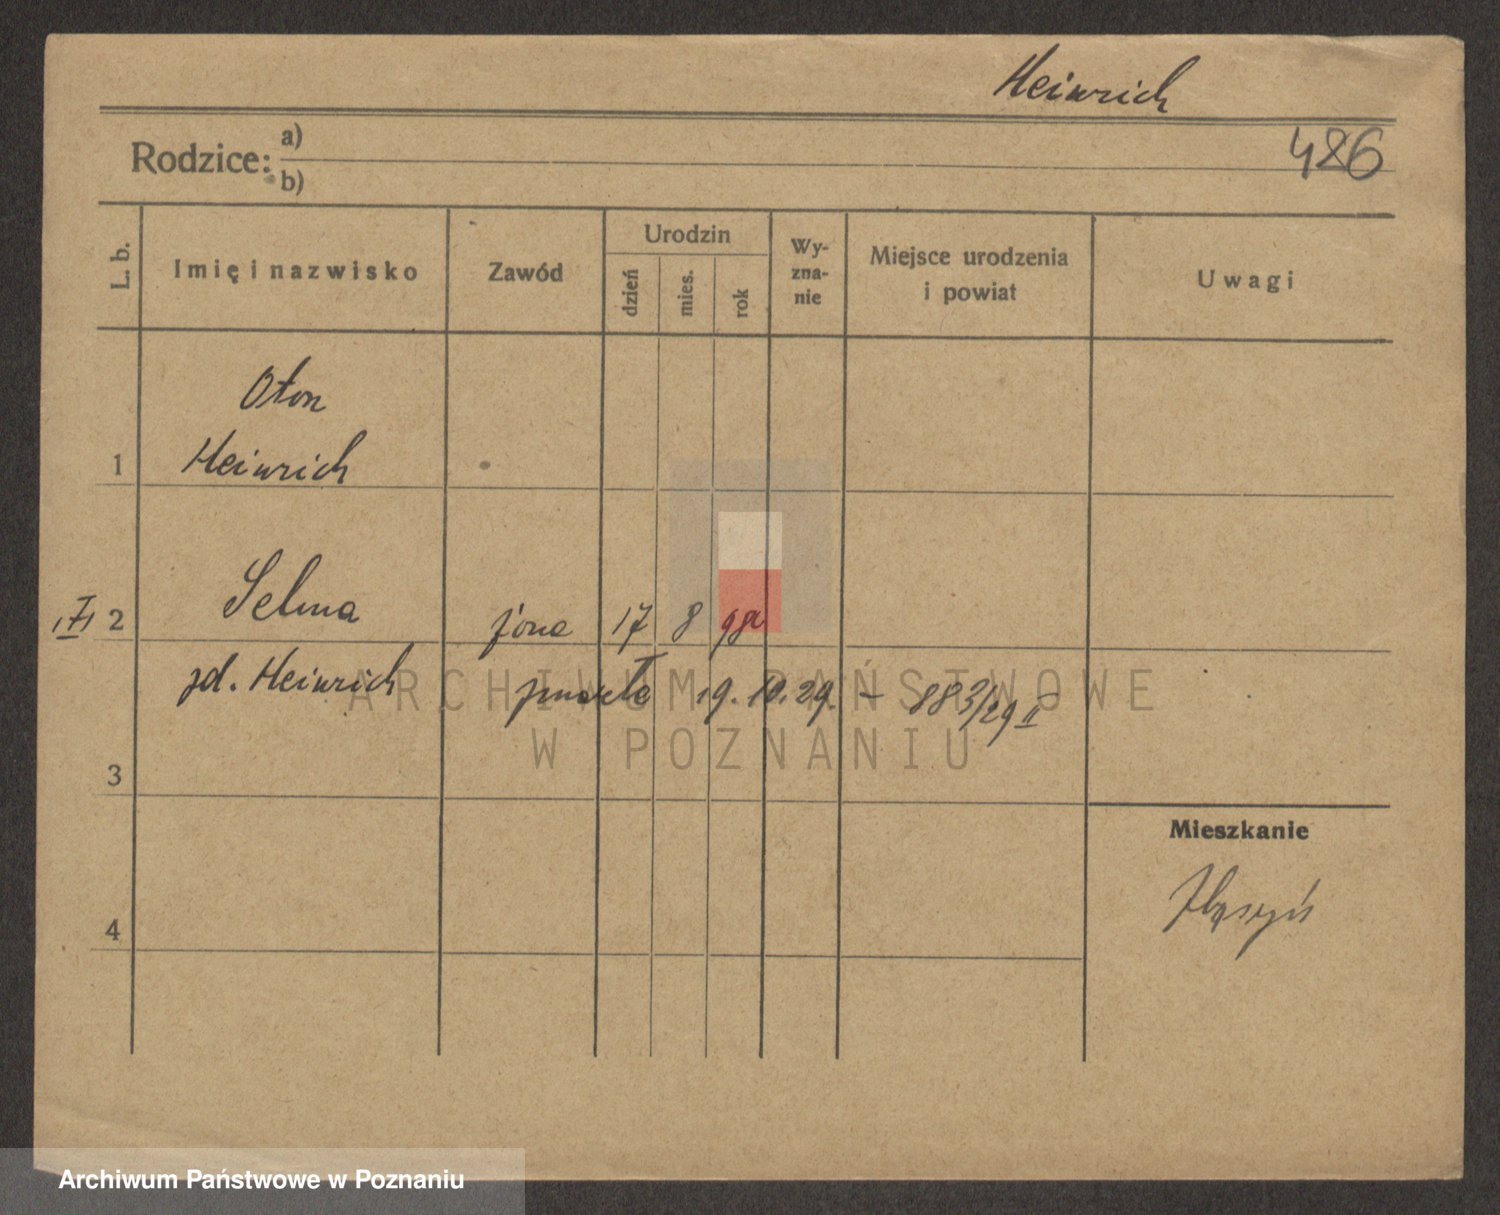 Heinrich
486
Rodzice: a)
b)
L. b.
Imię i nazwisko
Zawód
Urodzin
dzień
mies.
rok
Wy-
zna-
nie
Miejsce urodzenia
i powiat
Uwagi
Oton
1 Heinrich
2 Selma żona 17 8
zd. Heinrich zmarła 19.10.29. – 883/29 II
3
4
Mieszkanie
Zbąszyń
ARCHIWUM PAŃSTWOWE
W POZNANIU
Archiwum Państwowe w Poznaniu